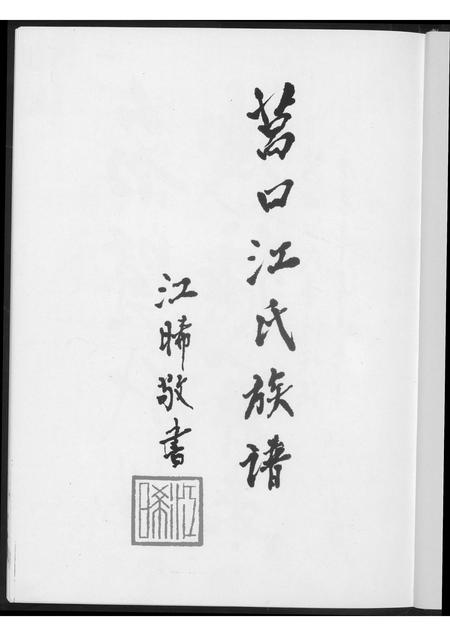 莒口江氏族谱
江晞敬书
江晞